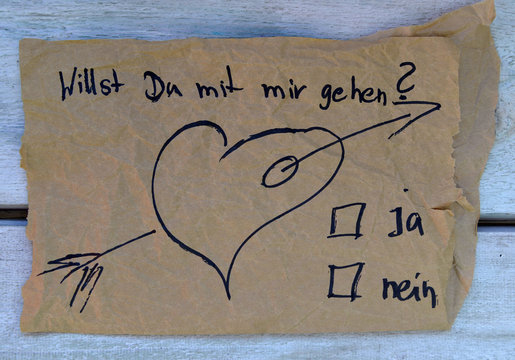 Willst Du mit mir gehen?
ja
nein